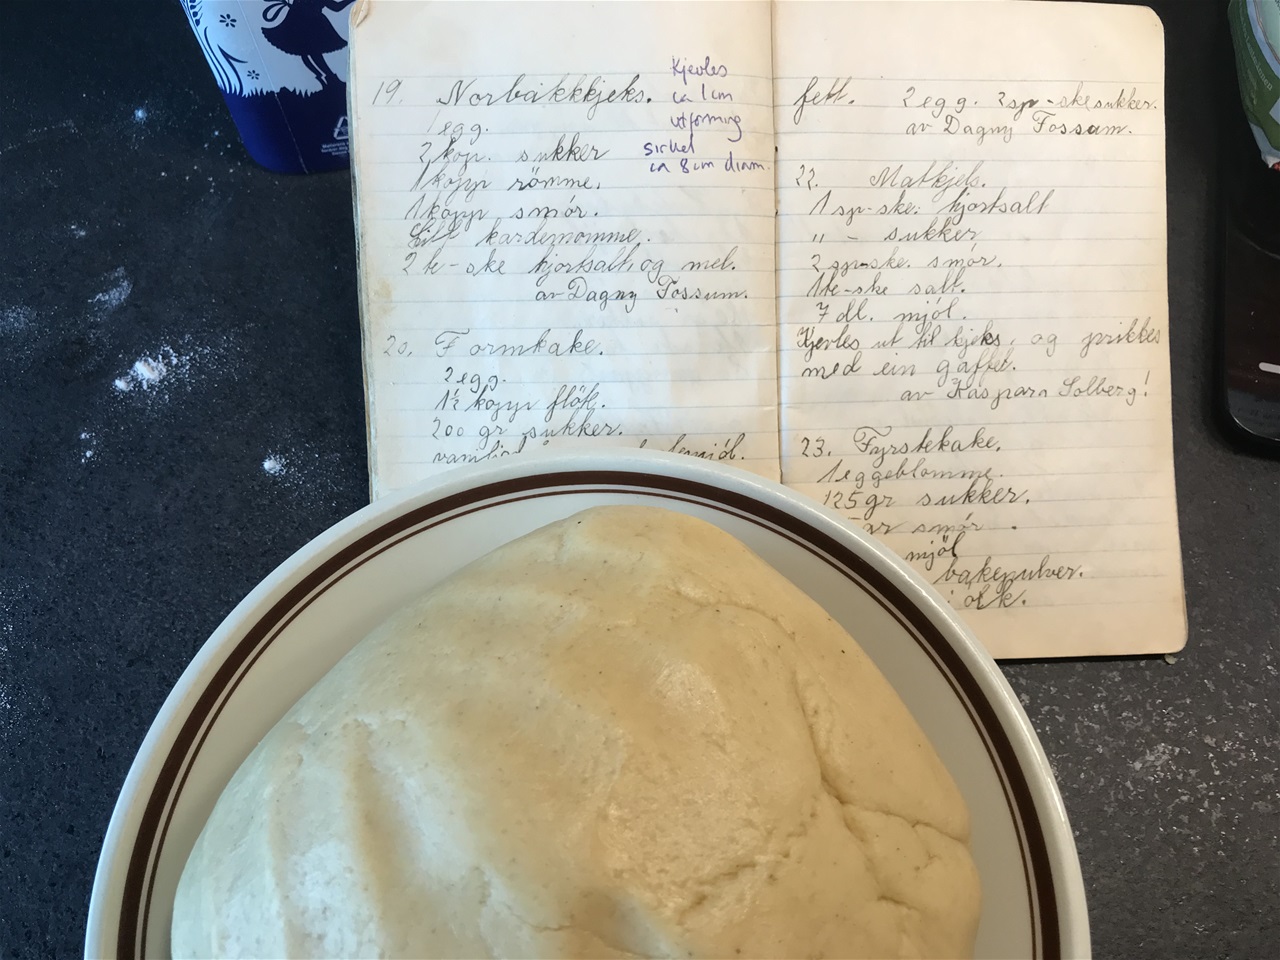 19. Norbakkkjeks.
1 egg.
2 kop. sukker
1 kopp römme.
1 kopp smör.
Litt kardemomme.
2 te-ske hjortsalt, og mel.
av Dagny Fossum.
Kjevles
ca 1 cm
utforming
sirkel
ca 8 cm diam.
20. Formkake.
2 egg.
1½ kopp flöt.
200 gr sukker.
fett. 2 egg. 2 sp-ske sukker.
av Dagny Fossum.
22. Matkjeks.
1 sp-ske. hjortsalt
" - sukker
2 sp-ske. smör.
1 te-ske salt.
7 dl. mjöl.
Kjevles ut til kjeks, og prikkes
med ein gaffel.
av Kaspara Solberg!
23. Fyrstekake.
1 eggeblomme.
125 gr sukker.
smör.
mjöl
bakepulver.